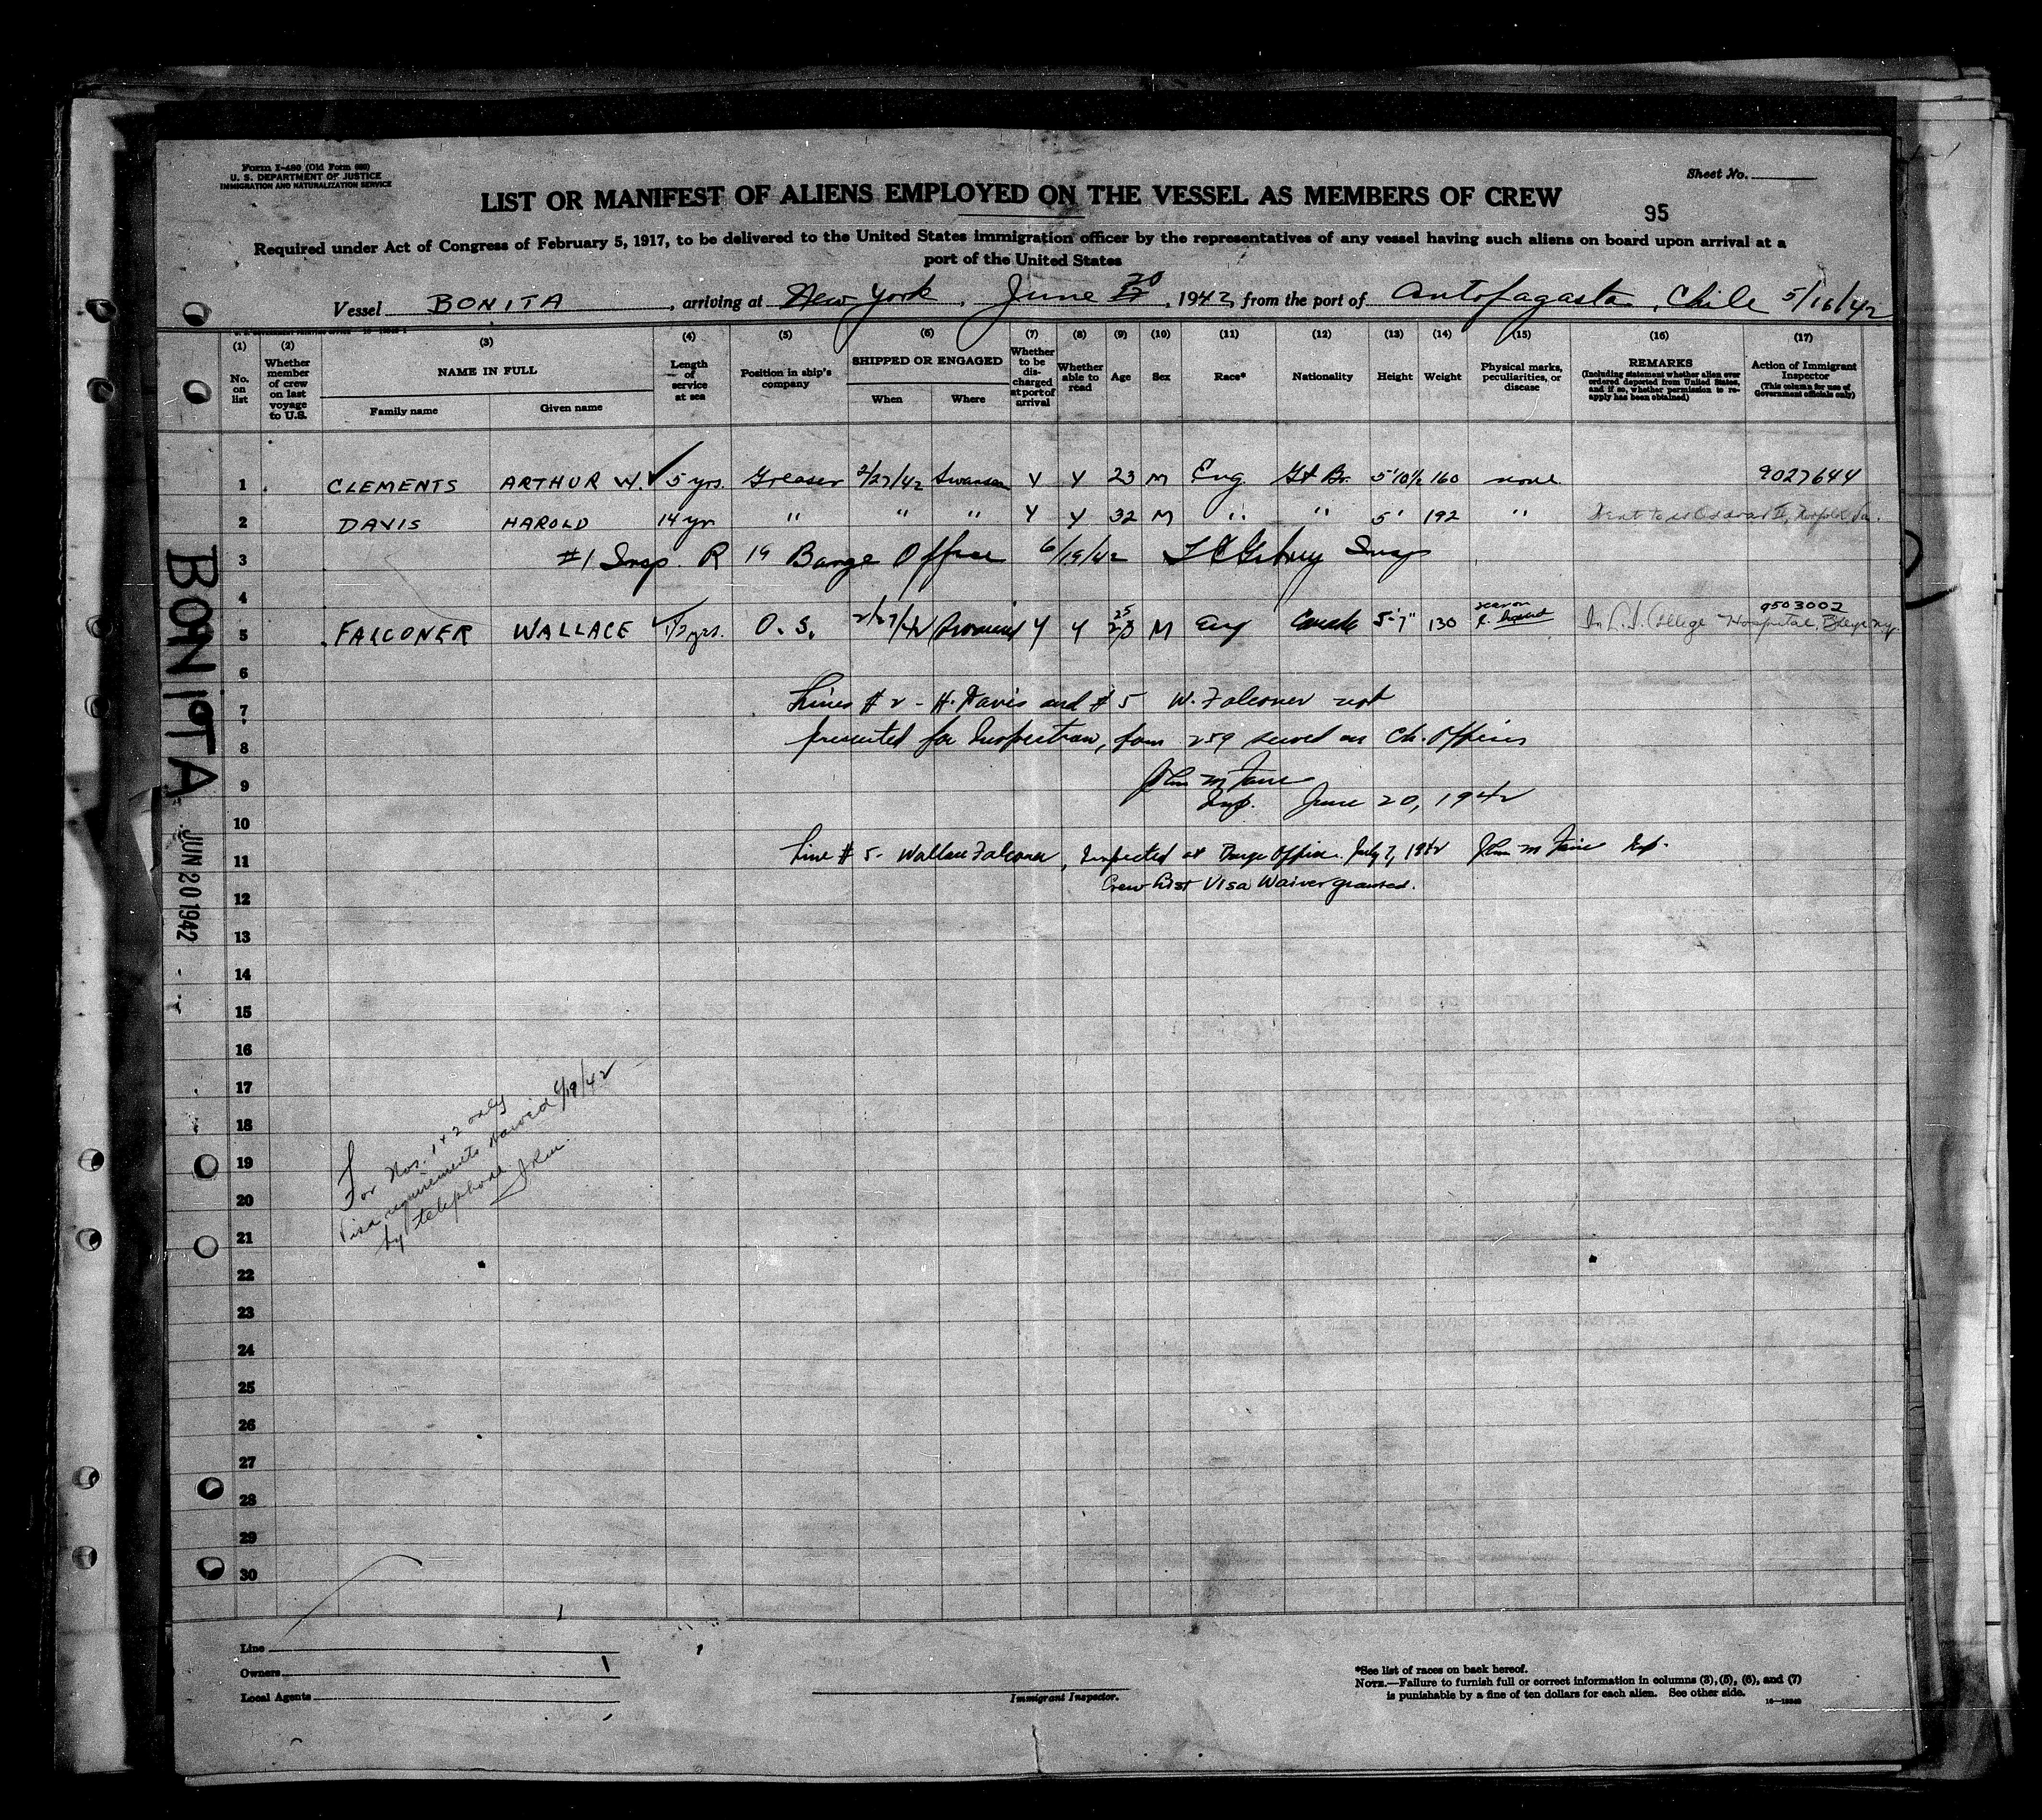 Form I-480 (Old Form 680)
U. S. DEPARTMENT OF JUSTICE
IMMIGRATION AND NATURALIZATION SERVICE
Sheet No.
LIST OR MANIFEST OF ALIENS EMPLOYED ON THE VESSEL AS MEMBERS OF CREW
95
Required under Act of Congress of February 5, 1917, to be delivered to the United States immigration officer by the representatives of any vessel having such aliens on board upon arrival at a
port of the United States
Vessel BONITA, arriving at New York, June 20, 1942, from the port of Antofagasta, Chile 5/16/42
(1) (2) (3) (4) (5) (6) (7) (8) (9) (10) (11) (12) (13) (14) (15) (16) (17)
No. on list
Whether member of crew on last voyage to U.S.
NAME IN FULL
Family name
Given name
Length of service at sea
Position in ship's company
SHIPPED OR ENGAGED
When
Where
Whether to be discharged at port of arrival
Whether able to read
Age
Sex
Race*
Nationality
Height
Weight
Physical marks, peculiarities, or disease
REMARKS
(Including statement whether alien ever ordered deported from United States, and if so, whether permission to reapply has been obtained)
Action of Immigrant Inspector
(This column for use of Government officials only)
1 CLEMENTS ARTHUR W. 5 yrs. Greaser 2/27/42 Swansea Y Y 23 M Eng. Gt Br. 5'10½ 160 none 9027644
2 DAVIS HAROLD 14 yr " " " Y Y 32 M " " 5' 192 " Norfolk Va.
3 #1 Insp. R 19 Barge Office 6/19/42 Insp
4
5 FALCONER WALLACE 1½ yrs. O. S. 2/27/42 Y Y 25 M Eng 5'-7" 130 scar on r. hand 9503002 In L. I. College Hospital,
6
7 Lines #2 - H. Davis and #5 W. Falconer not
8 presented for Inspection, form 259 served on Ch. Officer
9 John M
Insp. June 20, 1942
10
11 Line #5- Wallace Falconer, Inspected at Barge Office July 7, 1942 John M Insp.
12 Crew List Visa Waiver granted.
13
14
15
16
17
18
19
20
21
22
23
24
25
26
27
28
29
30
For Nos. 1 + 2 only
Visa requirements waived 6/19/42
by telephone
BONITA
JUN 20 1942
Line
Owners
Local Agents
Immigrant Inspector.
*See list of races on back hereof.
NOTE.—Failure to furnish full or correct information in columns (3), (5), (6), and (7)
is punishable by a fine of ten dollars for each alien. See other side.